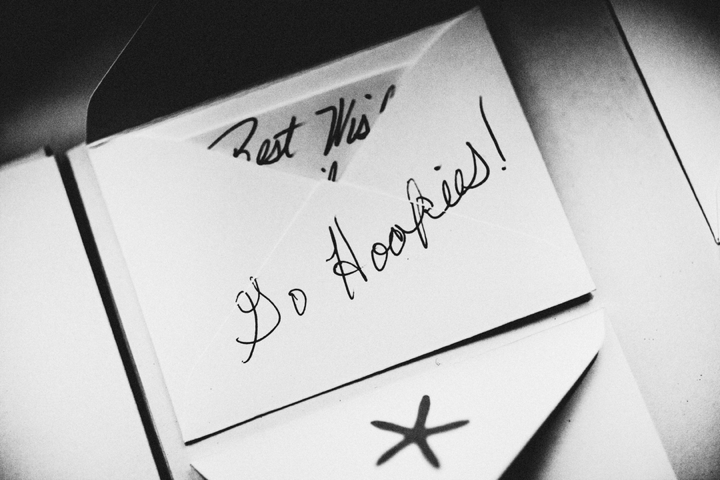 Best Wis
Go Hookies!